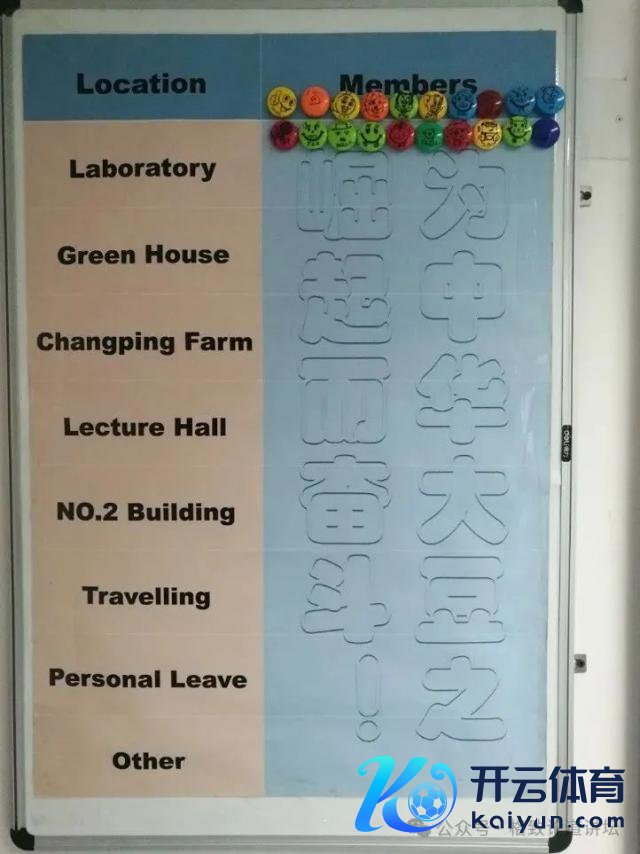 Location
Members
Laboratory
Green House
Changping Farm
Lecture Hall
NO.2 Building
Travelling
Personal Leave
Other
为中华大豆之
崛起而奋斗！
deli
开云体育
kaiyun.com
公众号